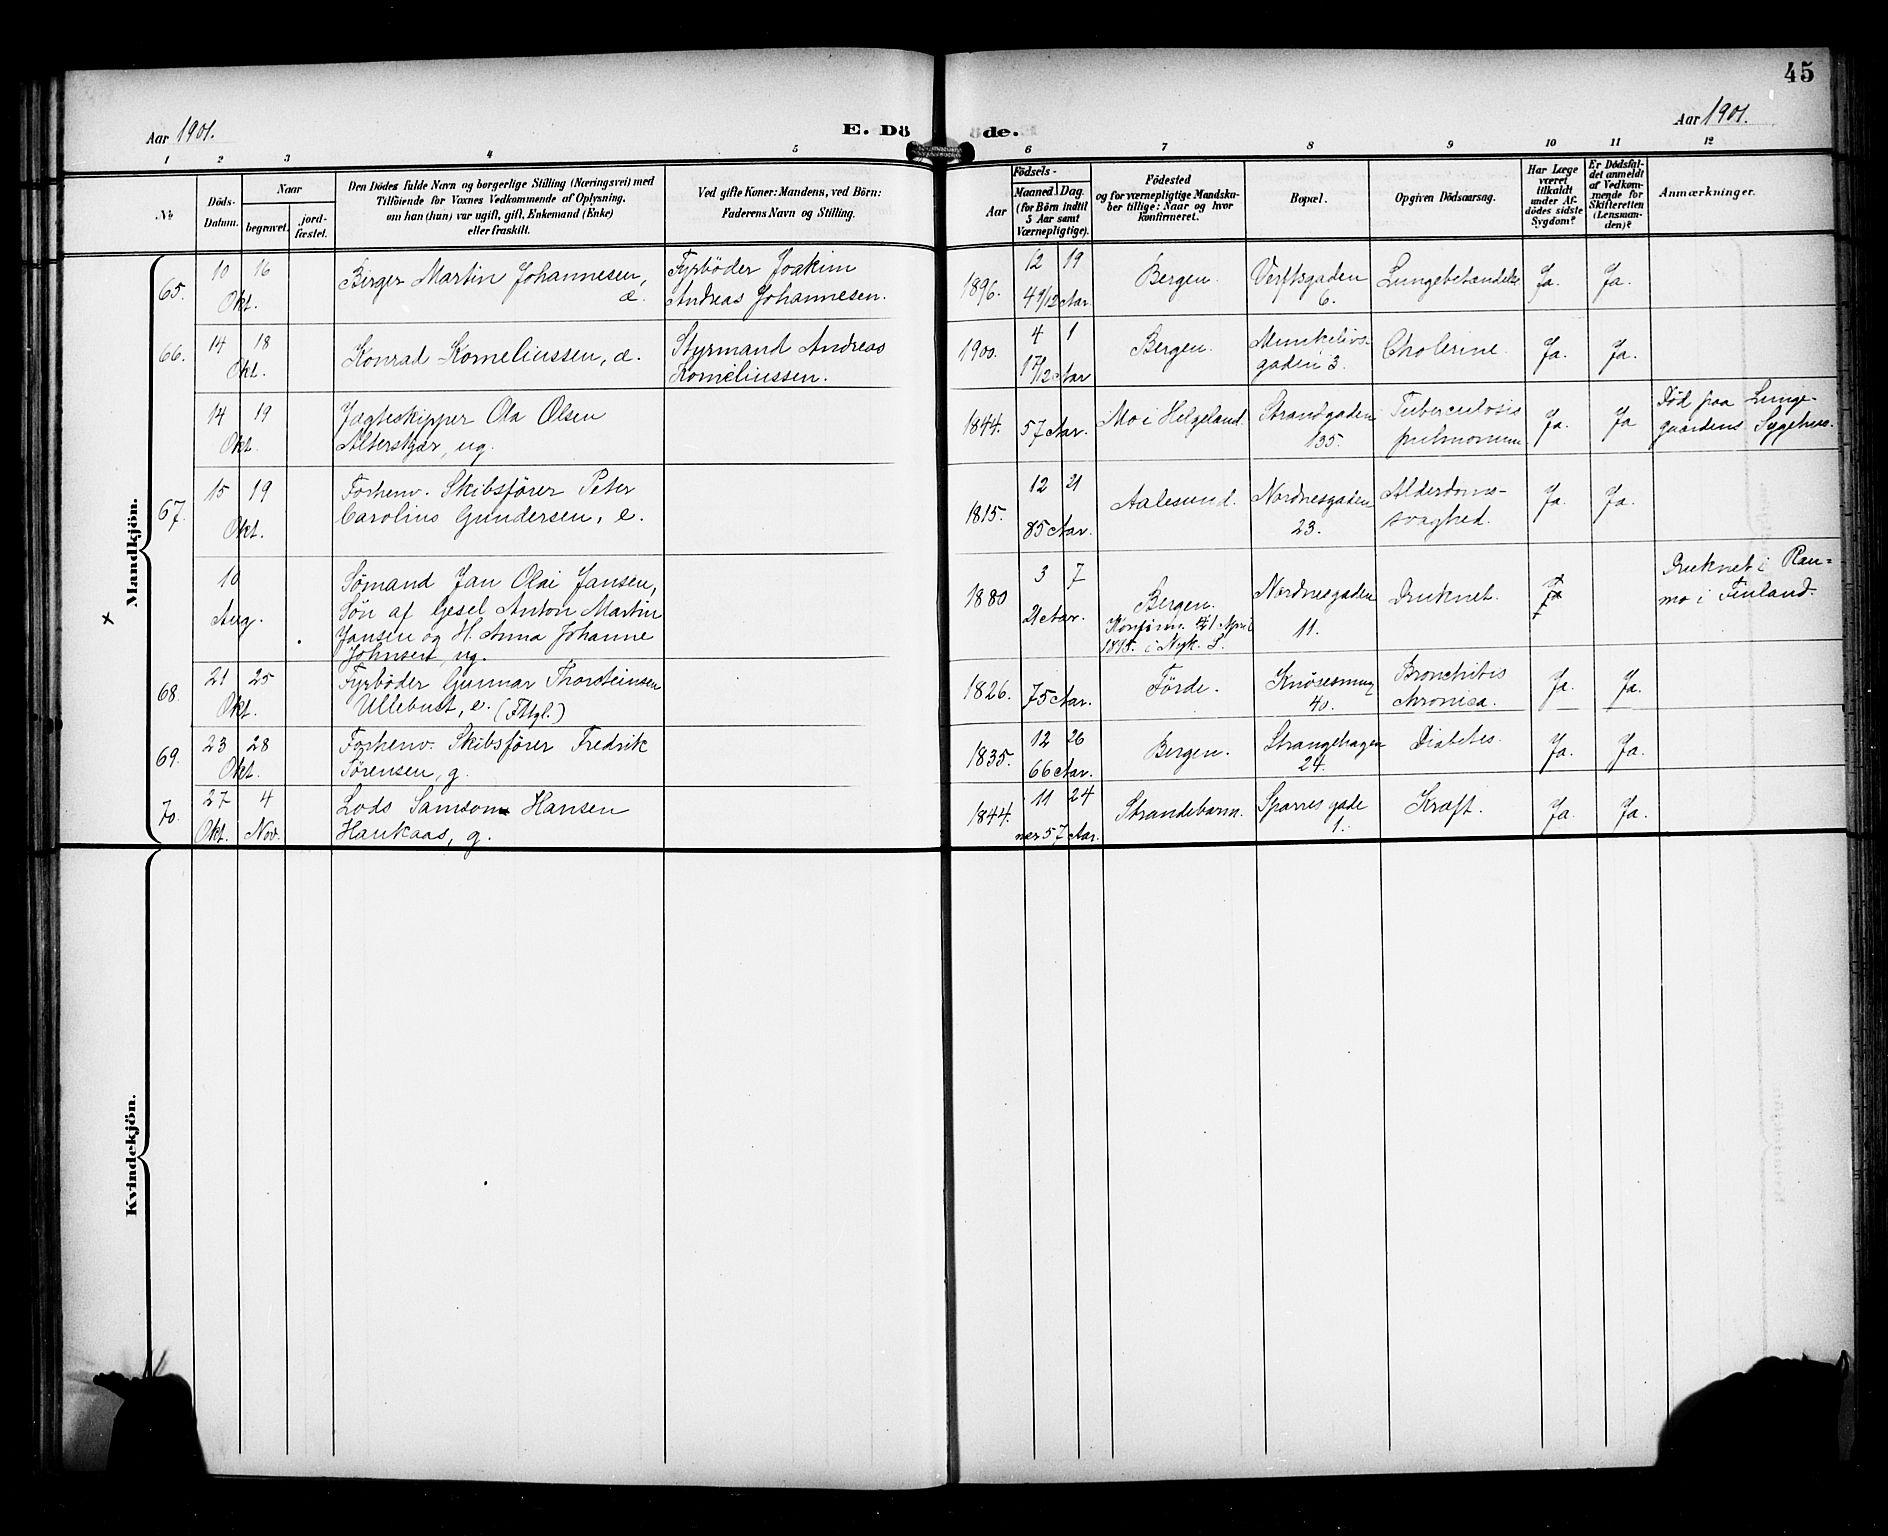 45
Aar 1901.
E. Döde.
Aar 1901.
1 2 3 4 5 6 7 8 9 10 11 12
№
Döds-
Datum.
Naar
begravet.
jord-
fæstet.
Den Dödes fulde Navn og borgerlige Stilling (Næringsvei) med
Tilföiende for Voxnes Vedkommende af Oplysning,
om han (hun) var ugift, gift, Enkemand (Enke)
eller fraskilt.
Ved gifte Koner: Mandens, ved Börn:
Faderens Navn og Stilling.
Födsels-
Aar
Maaned. Dag.
(for Börn indtil
5 Aar samt
Værnepligtige).
Födested
og for værnepligtige Mandska-
ber tillige: Naar og hvor
konfirmeret.
Bopæl.
Opgiven Dödsaarsag.
Har Læge
været
tilkaldt
under Af-
dödes sidste
Sygdom?
Er Dödsfal-
det anmeldt
af Vedkom-
mende for
Skifteretten
(Lensman-
den)?
Anmærkninger.
Mandkjön.
65.
10 16
Okt.
Birger Martin Johannesen,
æ.
Fyrböder Joakim
Andreas Johannesen.
1896.
12 19
4 9/12 Aar
Bergen.
Verftsgaden
6.
Lungebetændelse
Ja. Ja.
66.
14 18
Okt.
Konrad Korneliussen, æ.
Styrmand Andreas
Korneliussen.
1900.
4 1
1 7/12 Aar
Bergen.
Munkelivs-
gaden 3.
Cholerine.
Ja. Ja.
14 19
Okt.
Jægteskipper Ola Olsen
Alterskjær, ug.
1844.
57 Aar.
Mo i Helgeland.
Strandgaden
135.
Tuberculosis
pulmonum
Ja. Ja
Död paa Lunge-
gaardens Sygehus.
67.
15 19
Okt.
Forhenv. Skibsförer Peter
Carolius Gundersen, e.
1815.
12 21
85 Aar.
Aalesund.
Nordnesgaden
23.
Alderdoms-
svaghed.
Ja. Ja.
x
10
Aug.
Sömand Jan Olai Jansen,
Sön af Gesel Anton Martin
Jansen og H. Anna Johanne
Johnsen, ug.
1880
3 7
21 Aar.
Bergen.
Konfirm. 21 April
1895. i Nyk. S.
Nordnesgaden
11.
Druknet.
Druknet i Rau-
mo i Finland.
68.
21 25
Okt.
Fyrböder Gunnar Thorsteinsen
Ullebust, e. (Fttgl.)
1826.
75 Aar.
Förde.
Knösesmug
40.
Bronchitis
chronica.
Ja. Ja.
69.
23 28
Okt.
Forhenv. Skibsförer Fredrik
Sörensen, g.
1835.
12 26
66 Aar.
Bergen.
Strangehagen
24.
Diabetes.
Ja. Ja.
70.
27 4
Okt. Nov.
Lods Samson Hansen
Haukaas, g.
1844.
11 24
nær 57 Aar.
Strandebarm.
Sparresgade
1.
Kræft.
Ja. Ja.
Kvindekjön.